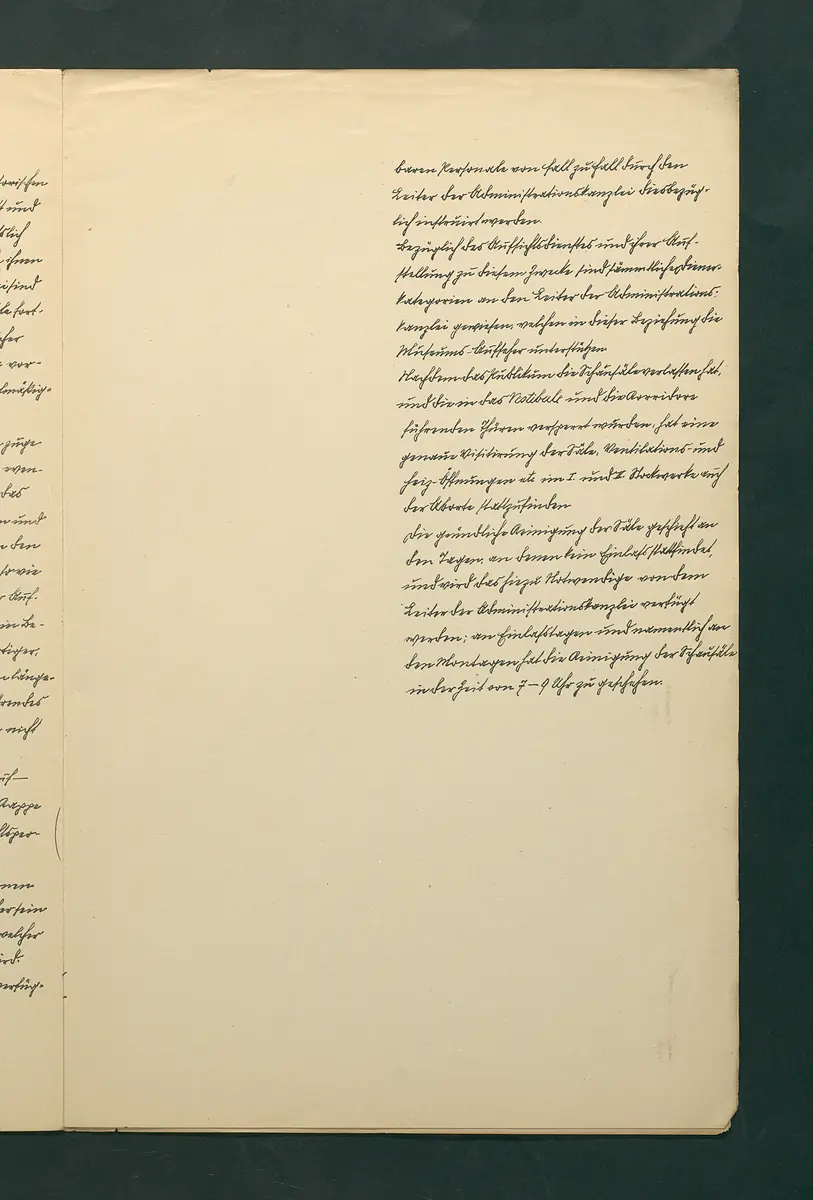 torischen
t und
tslich
ihnen
sind
le fort-
cher
vor-
lmäßig-
züge
even-
das
n und
n den
sowie
r Auf-
in Be-
tiger,
n länge-
rendes
nicht
uf—
Kappe
ltsper-
nen
er sein
welcher
ird.
verfüg-
baren Personale von Fall zu Fall durch den
Leiter der Administrationskanzlei diesbezüg-
lich instruirt werden.
Bezüglich des Aufsichtsdienstes und ihrer Auf-
stellung zu diesem Zwecke sind sämmtliche Diener-
kategorien an den Leiter der Administrations-
kanzlei gewiesen, welchen in dieser Beziehung die
Museums-Aufseher unterstützen.
Nachdem das Publikum die Schausäle verlassen hat,
und die in das Vestibule und die Korridore
führenden Thüren versperrt wurden, hat eine
genaue Visitirung der Säle, Ventilations- und
Heiz-Öffnungen etc im I. und II. Stockwerke auch
der Aborte stattzufinden.
Die gründliche Reinigung der Säle geschieht an
den Tagen, an denen kein Einlaß stattfindet,
und wird das hiezu Notwendige von dem
Leiter der Administrationskanzlei verfügt
werden; an Einlaßtagen und namentlich an
den Montagen hat die Reinigung der Schausäle
in der Zeit von 7–9 Uhr zu geschehen.